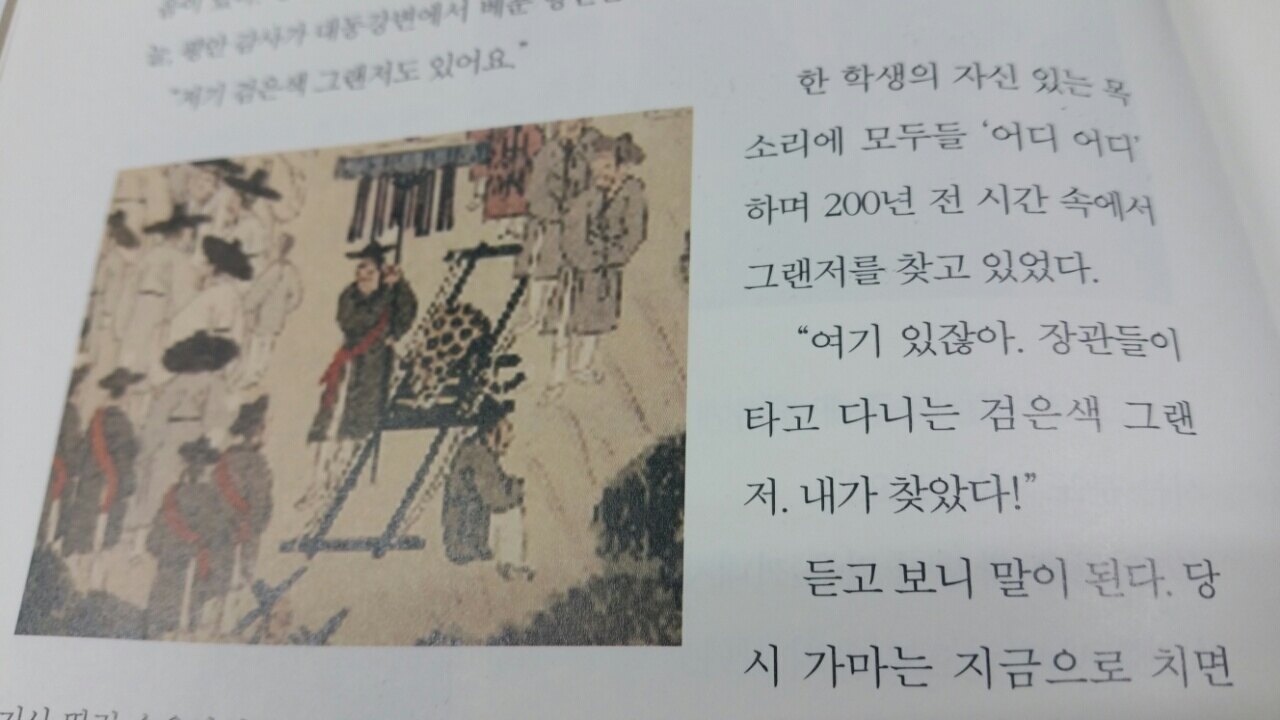 늘, 평안 감사가 대동강변에서 베푼
"저기 검은색 그랜저도 있어요."
한 학생의 자신 있는 목
소리에 모두들 '어디 어디'
하며 200년 전 시간 속에서
그랜저를 찾고 있었다.
"여기 있잖아. 장관들이
타고 다니는 검은색 그랜
저. 내가 찾았다!"
듣고 보니 말이 된다. 당
시 가마는 지금으로 치면